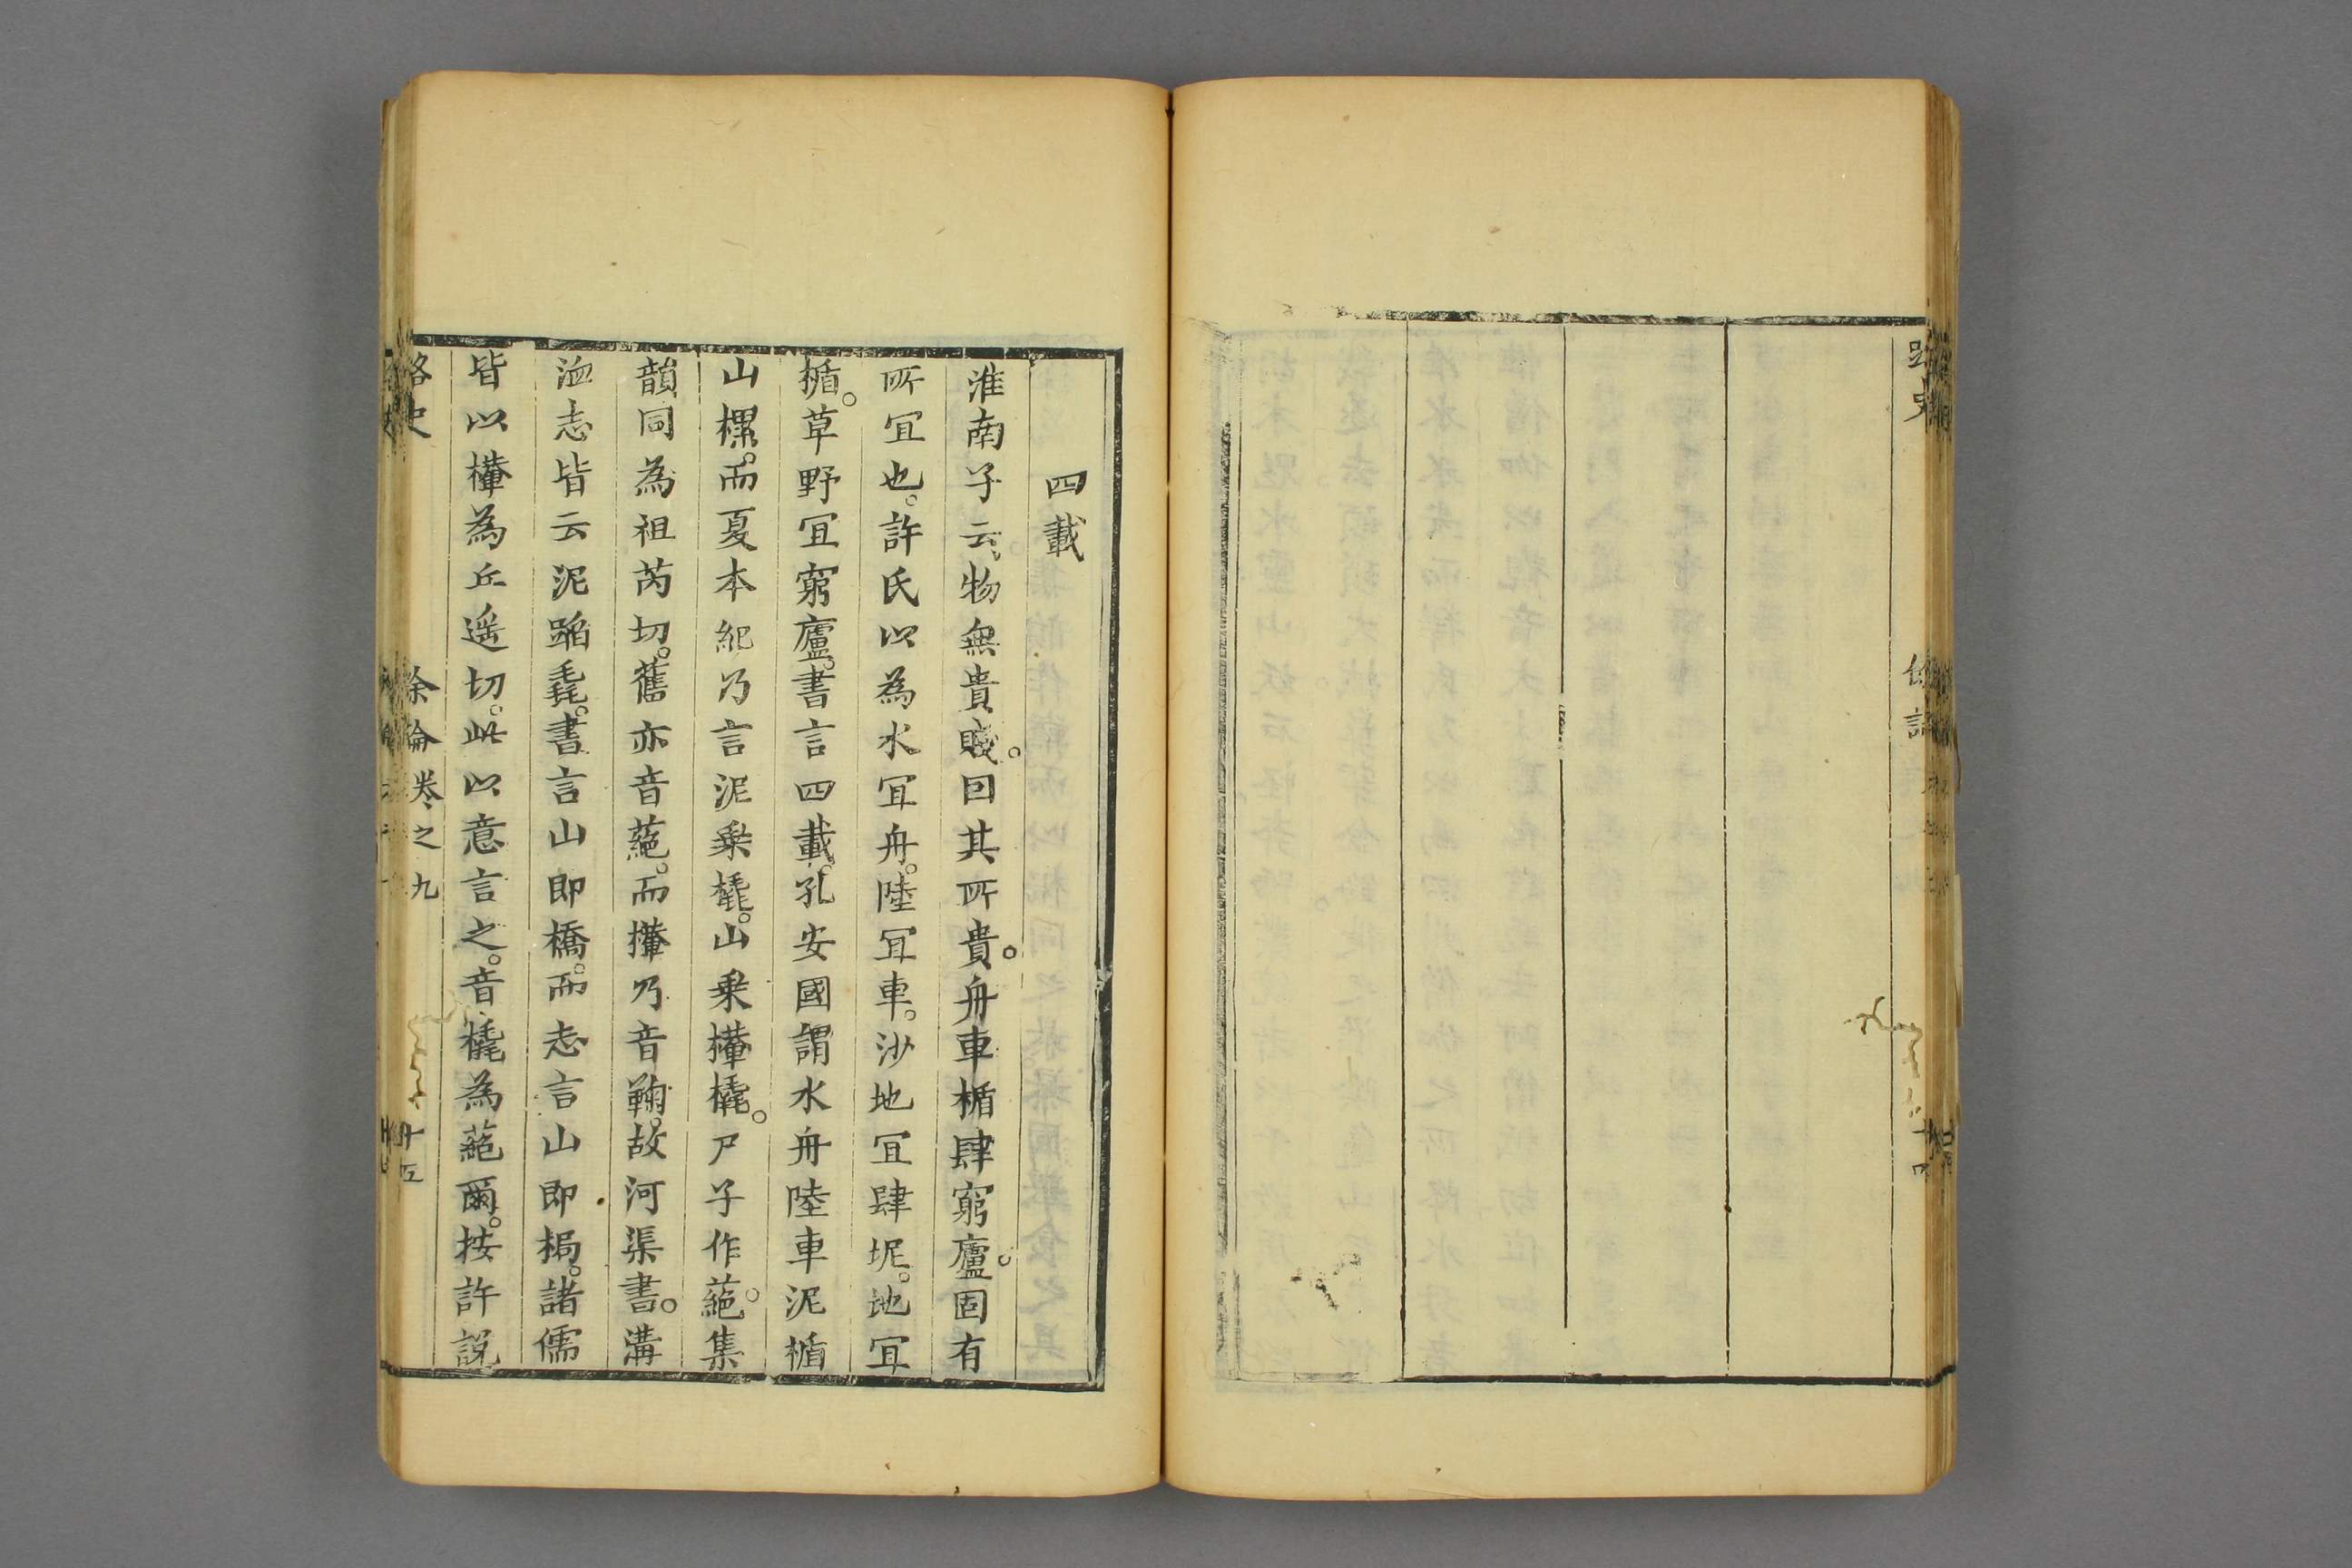 路史
四載
淮南子云物無貴賤。因其所貴。舟車楯肆窮廬。固有
所宜也。許氏以為水宜舟。陸宜車。沙地宜肆坭。地宜
楯。草野宜窮廬。書言四載。孔安國謂水舟陸車泥楯
山樏。而夏本紀乃言泥乗橇。山乗檋橇。尸子作蕝。集
韻同為祖芮切。舊亦音蕝。而檋乃音鞠。故河渠書。溝
洫志皆云泥蹈毳。書言山即橋。而志言山即梮。諸儒
皆以檋為丘遥切。此以意言之。音橇為蕝爾。按許說
路史 余論卷之九 十五